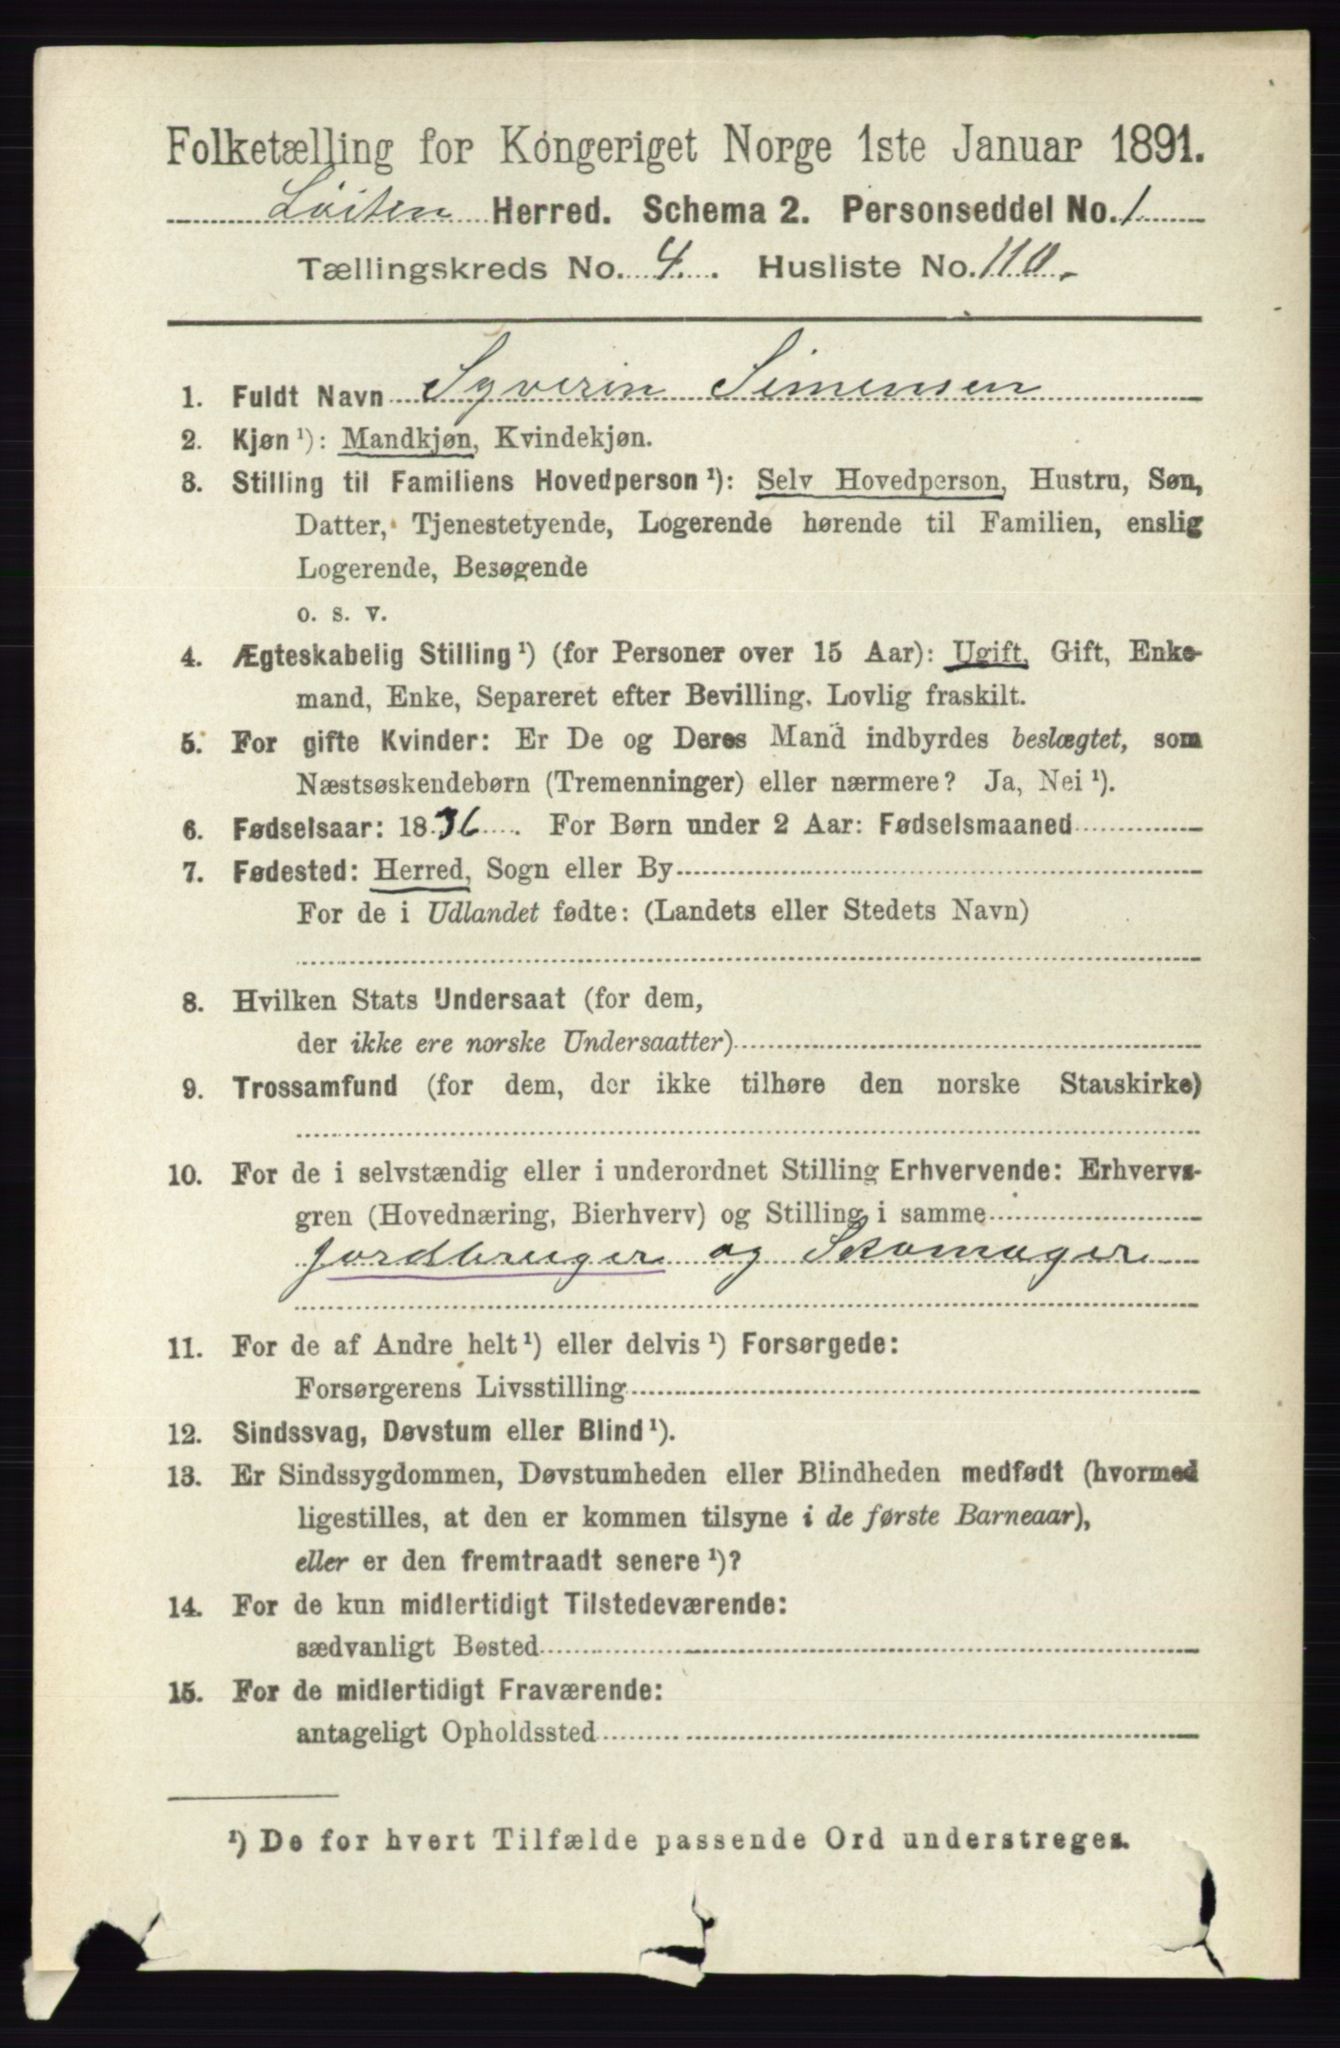 Folketælling for Kongeriget Norge 1ste Januar 1891.
Löiten Herred. Schema 2. Personseddel No. 1
Tællingskreds No. 4. Husliste No. 110.
1. Fuldt Navn Syverin Simensen
2. Kjøn ¹): Mandkjøn, Kvindekjøn.
3. Stilling til Familiens Hovedperson ¹): Selv Hovedperson, Hustru, Søn,
Datter, Tjenestetyende, Logerende hørende til Familien, enslig
Logerende, Besøgende
o. s. v.
4. Ægteskabelig Stilling ¹) (for Personer over 15 Aar): Ugift, Gift, Enke-
mand, Enke, Separeret efter Bevilling. Lovlig fraskilt.
5. For gifte Kvinder: Er De og Deres Mand indbyrdes beslægtet, som
Næstsøskendebørn (Tremenninger) eller nærmere? Ja, Nei ¹).
6. Fødselsaar: 1836. For Børn under 2 Aar: Fødselsmaaned
7. Fødested: Herred, Sogn eller By
For de i Udlandet fødte: (Landets eller Stedets Navn)
8. Hvilken Stats Undersaat (for dem,
der ikke ere norske Undersaatter)
9. Trossamfund (for dem, der ikke tilhøre den norske Statskirke)
10. For de i selvstændig eller i underordnet Stilling Erhvervende: Erhvervs-
gren (Hovednæring, Bierhverv) og Stilling i samme
Jordbruger og Skomager
11. For de af Andre helt ¹) eller delvis ¹) Forsørgede:
Forsørgerens Livsstilling
12. Sindssvag, Døvstum eller Blind ¹).
13. Er Sindssygdommen, Døvstumheden eller Blindheden medfødt (hvormed
ligestilles, at den er kommen tilsyne i de første Barneaar),
eller er den fremtraadt senere ¹)?
14. For de kun midlertidigt Tilstedeværende:
sædvanligt Bosted
15. For de midlertidigt Fraværende:
antageligt Opholdssted
¹) De for hvert Tilfælde passende Ord understreges.